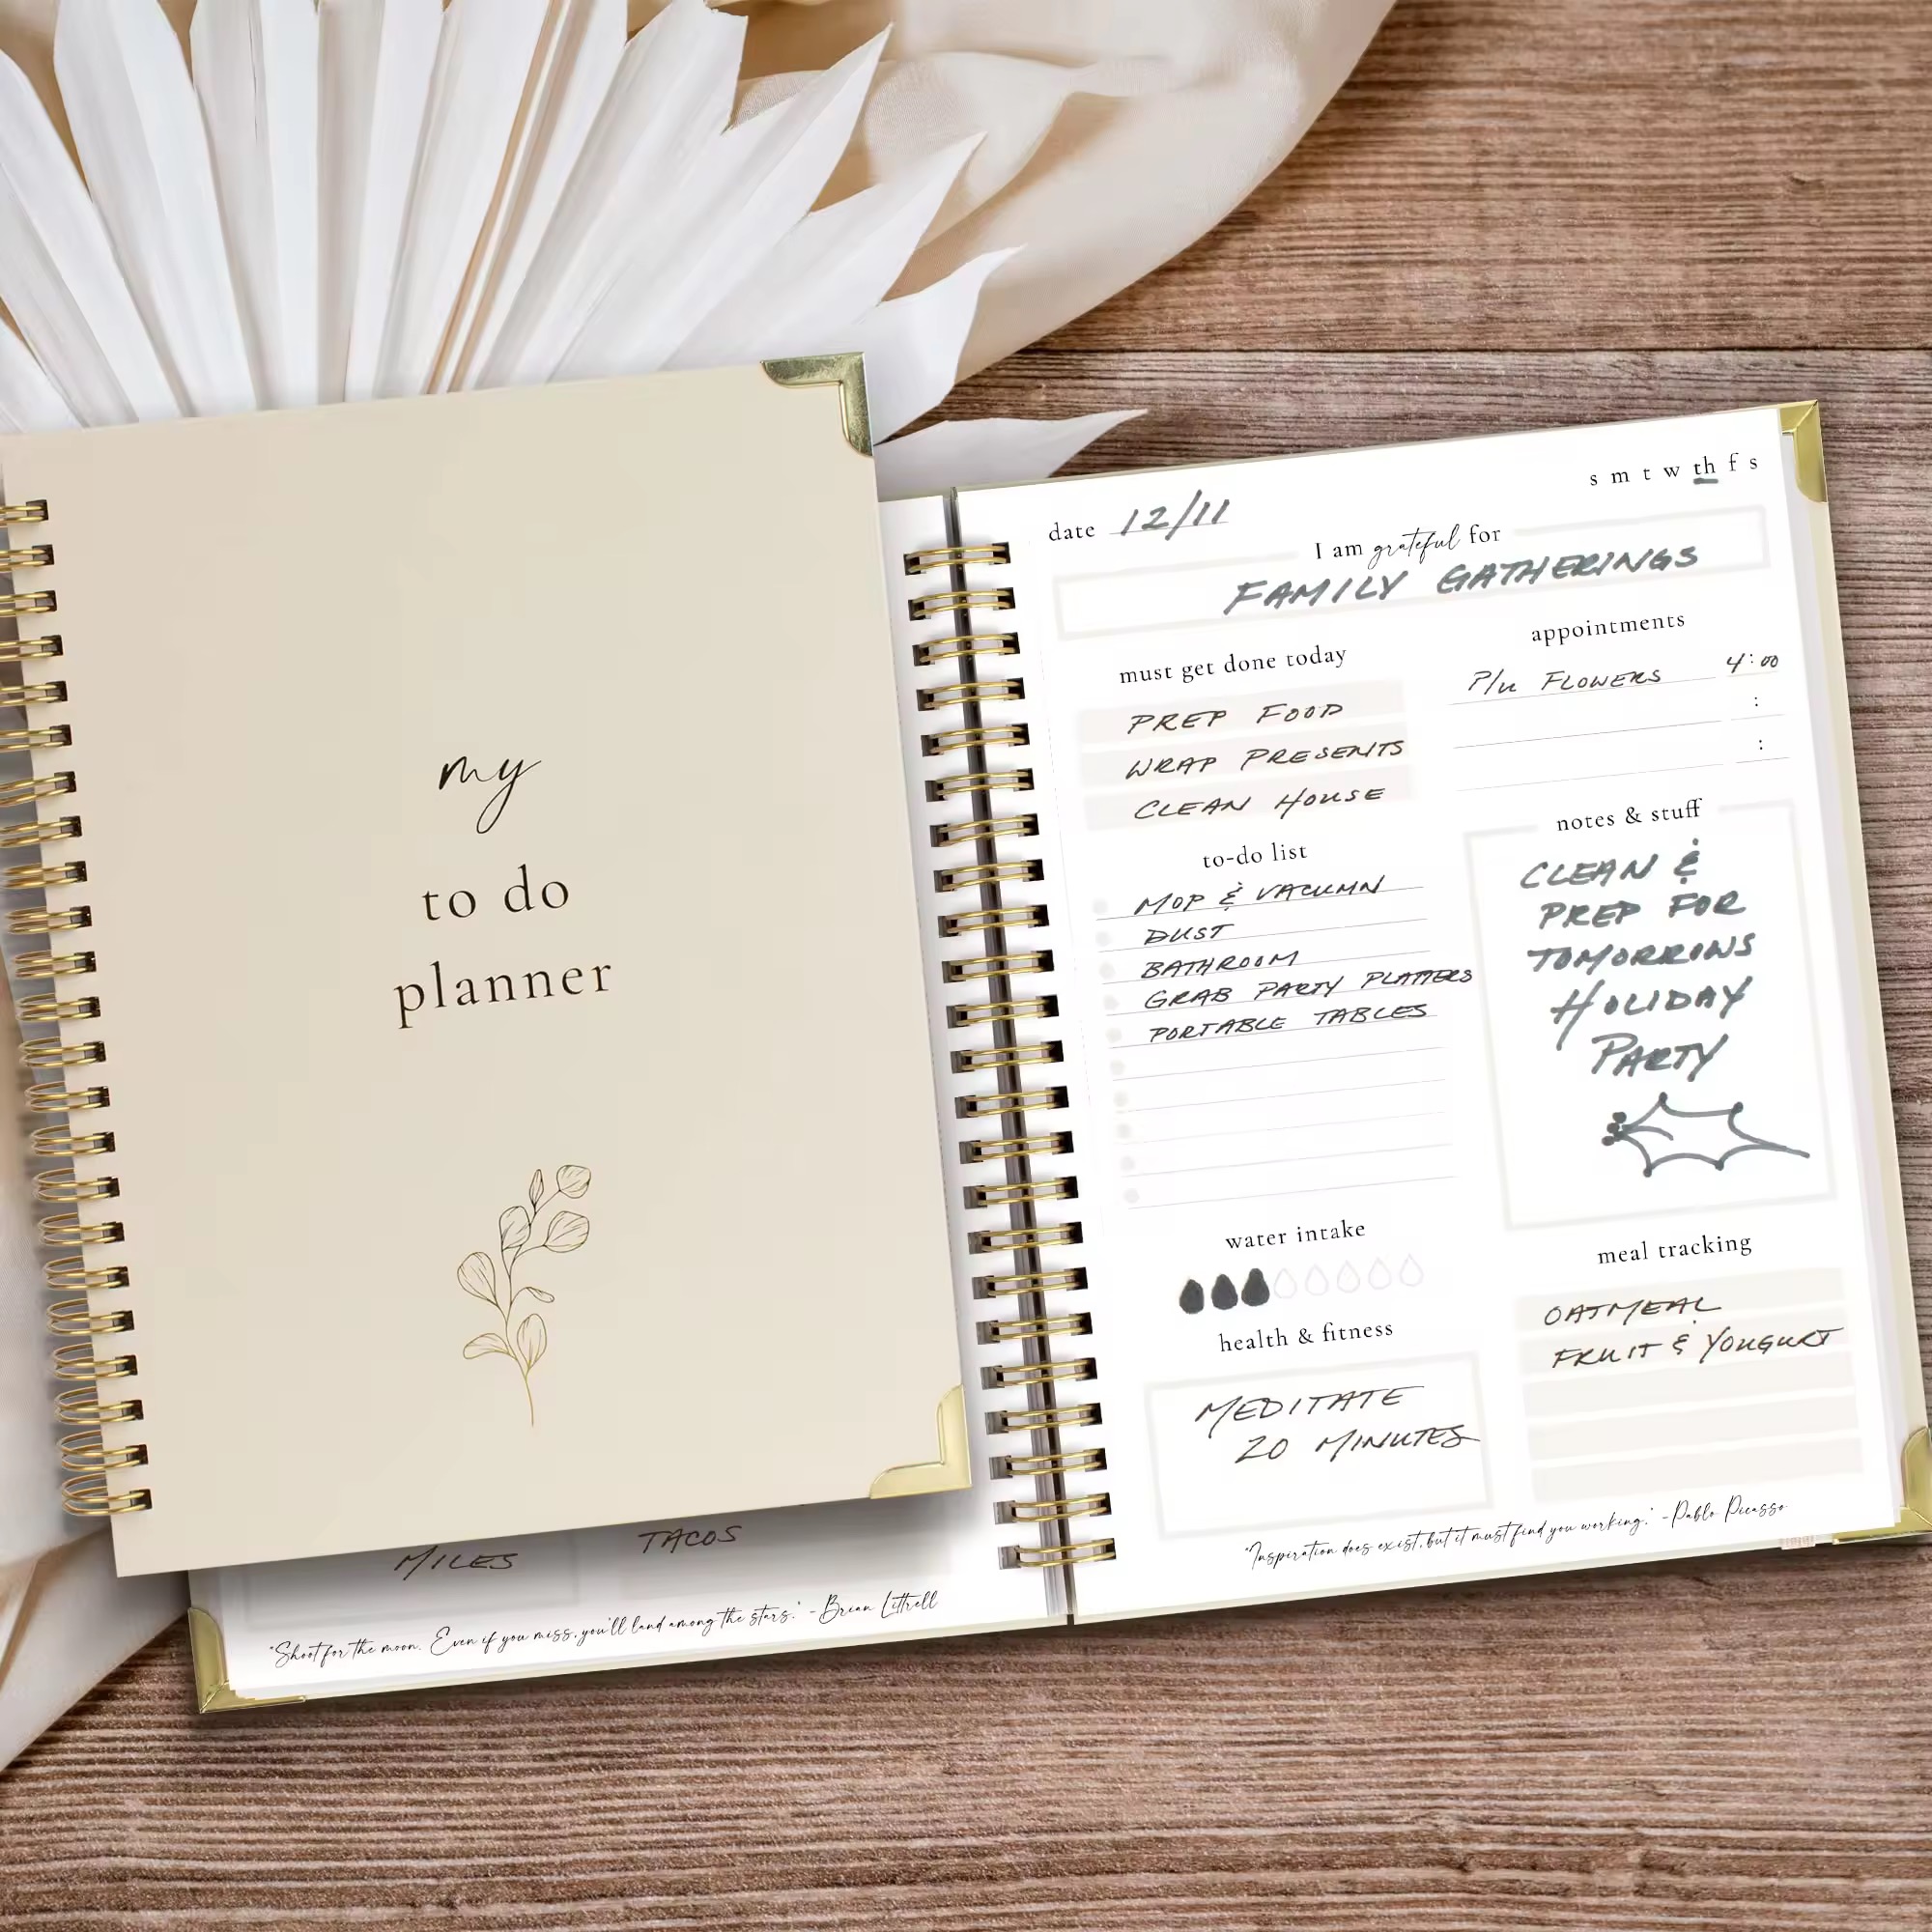 my
to do
planner
MILES
TACOS
"Shoot for the moon. Even if you miss, you'll land among the stars." -Brian Littrell
s m t w th f s
date 12/11
I am grateful for
FAMILY GATHERINGS
must get done today
PREP FOOD
WRAP PRESENTS
CLEAN HOUSE
appointments
P/U FLOWERS 4:00
:
:
to-do list
MOP & VACUUMN
DUST
BATHROOM
GRAB PARTY PLATTERS
PORTABLE TABLES
notes & stuff
CLEAN &
PREP FOR
TOMORROWS
HOLIDAY
PARTY
water intake
health & fitness
MEDITATE
20 MINUTES
meal tracking
OATMEAL
FRUIT & YOUGURT
"Inspiration does exist, but it must find you working." -Pablo Picasso